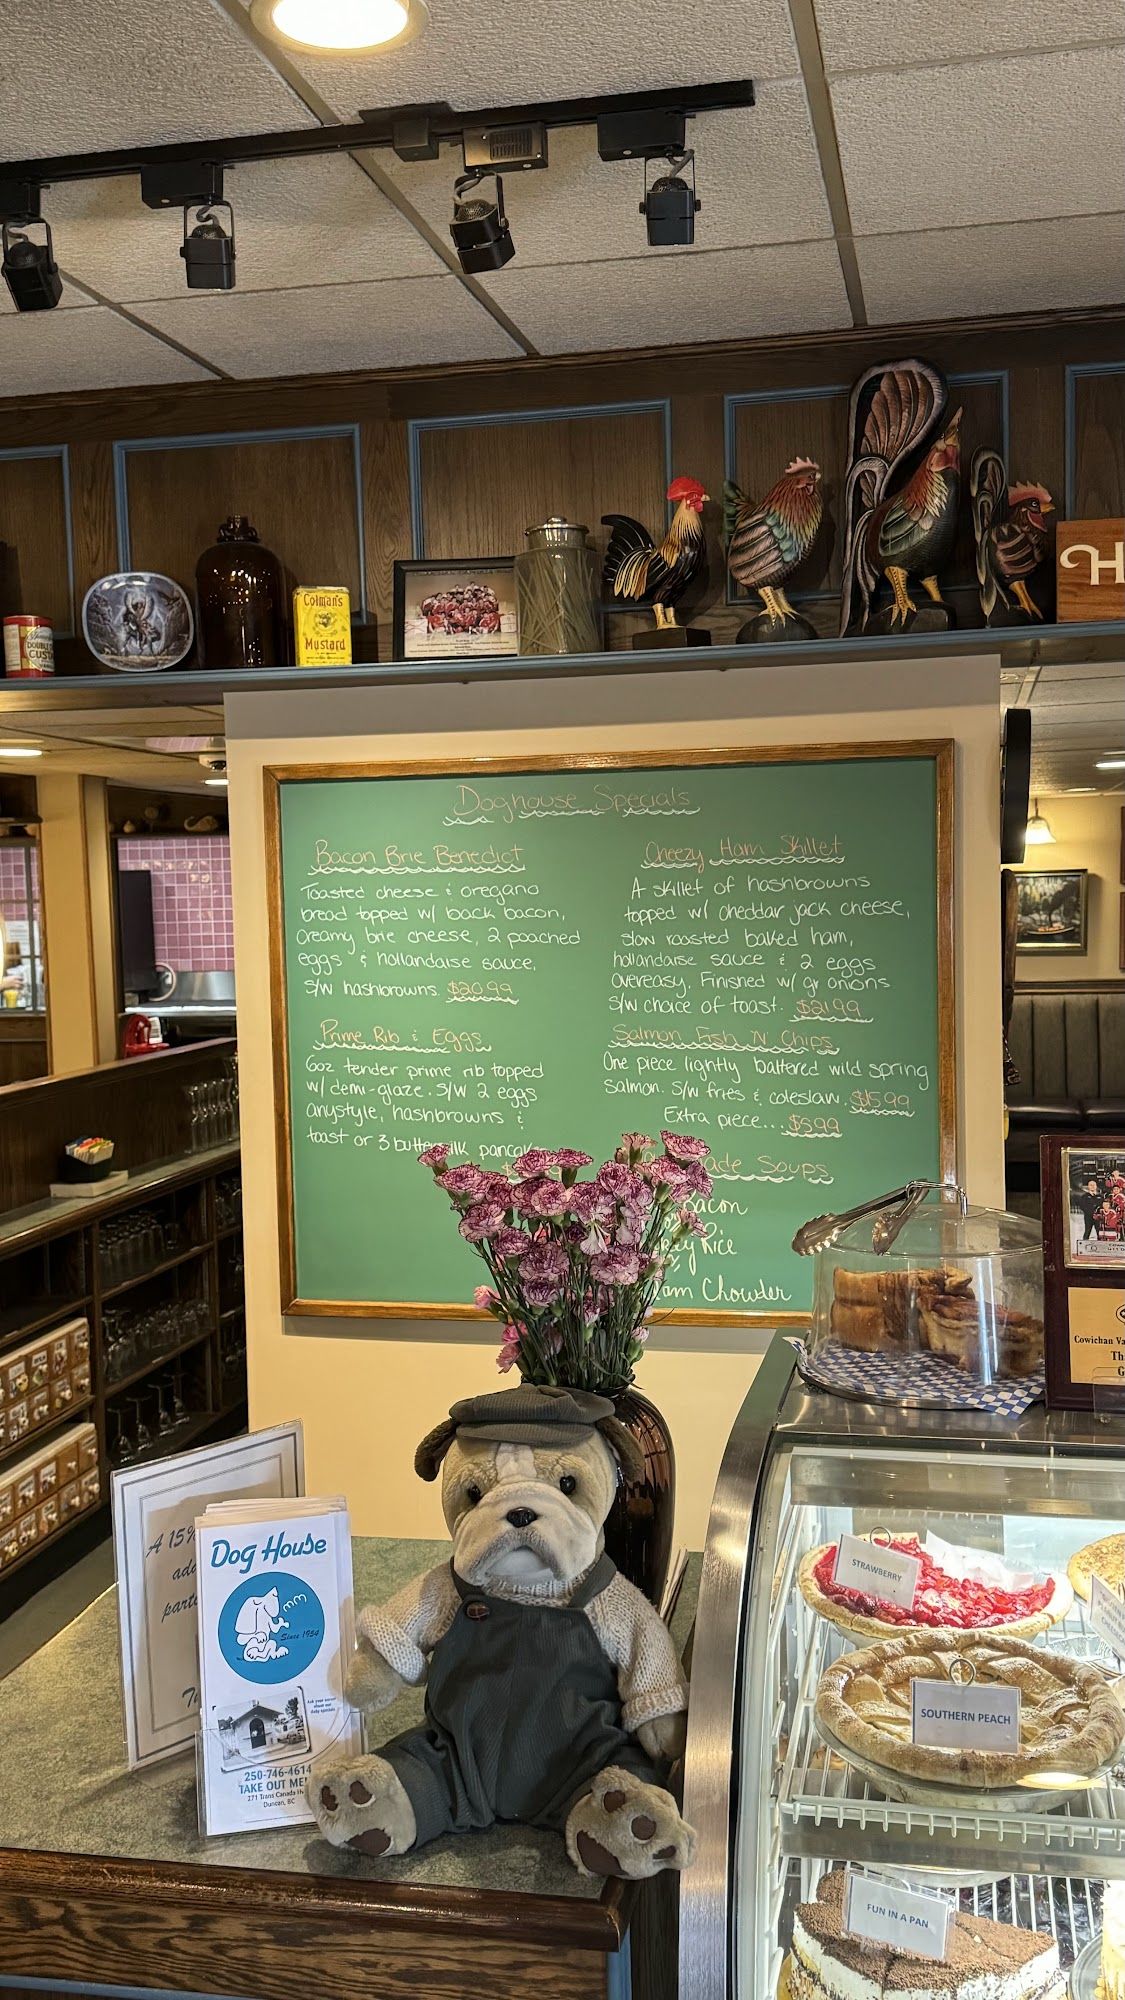 Colman's
Mustard
H
Doghouse Specials
Bacon Brie Benedict
Toasted cheese & oregano
bread topped w/ back bacon,
creamy brie cheese, 2 poached
eggs & hollandaise sauce,
S/W hashbrowns. $20.99
Prime Rib & Eggs
6oz tender prime rib topped
w/ demi-glaze. S/W 2 eggs
anystyle, hashbrowns &
toast or 3 buttermilk
Cheezy Ham Skillet
A skillet of hashbrowns
topped w/ cheddar jack cheese,
slow roasted baked ham,
hollandaise sauce & 2 eggs
overeasy. Finished w/ gr onions
S/W choice of toast. $21.99
Salmon Fish 'N' Chips
One piece lightly battered wild spring
salmon. S/W fries & coleslaw. $15.99
Extra piece... $5.99
Soups
Bacon
Rice
Chowder
A 15%
Dog House
Since 1954
Ask your server
about our
daily specials
250-746-4614
TAKE OUT
271 Trans Canada
Duncan, BC
Cowichan
STRAWBERRY
SOUTHERN PEACH
FUN IN A PAN